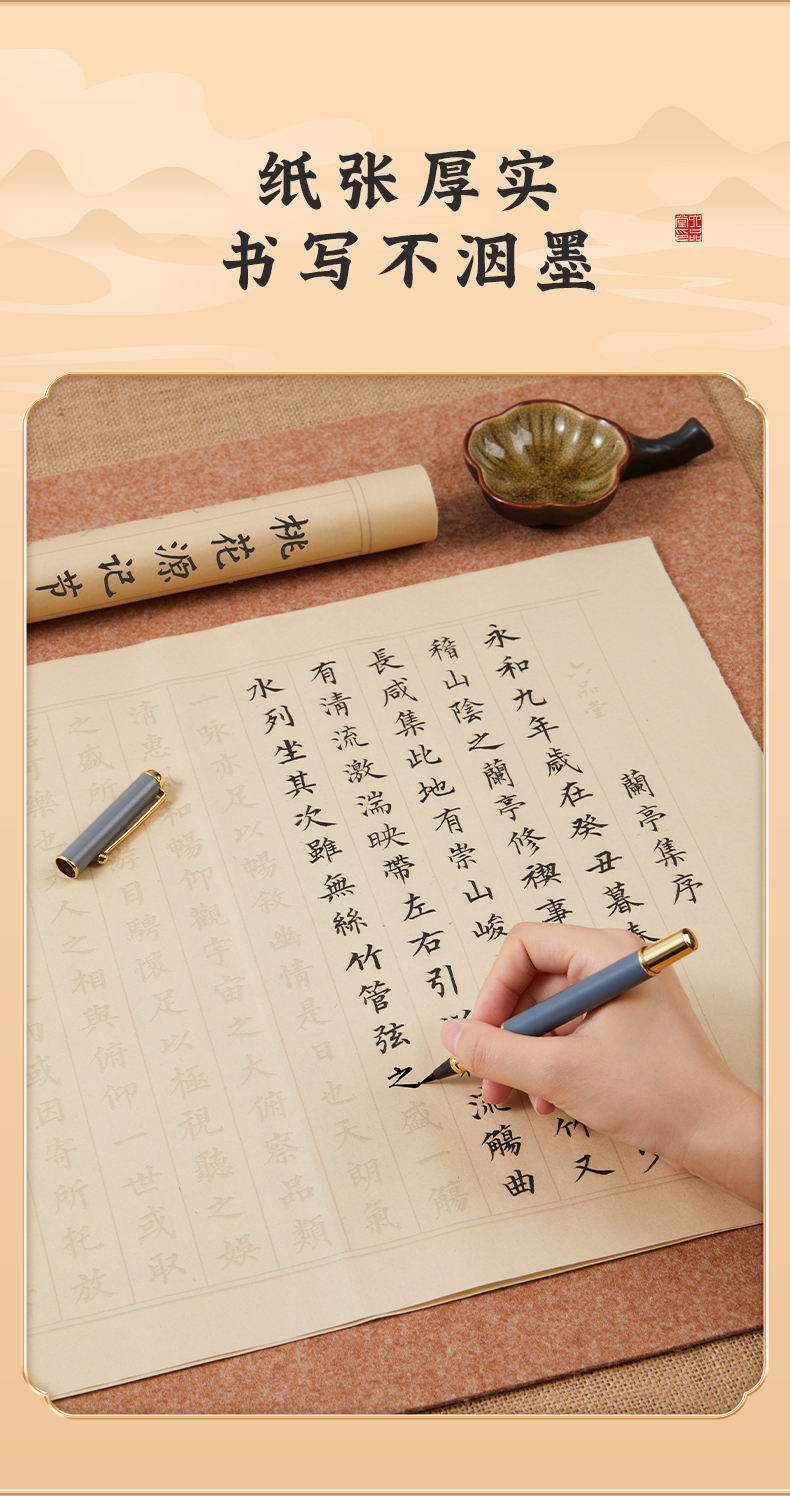 纸张厚实
书写不洇墨
六品堂印
桃花源记节
六品堂
蘭亭集序
永和九年歲在癸丑暮春
稽山陰之蘭亭修禊事少
長咸集此地有崇山峻竹又
有清流激湍映帶左右引流觴曲
水列坐其次雖無絲竹管弦之盛一觴
一咏亦足以暢敘幽情是日也天朗氣
清惠和暢仰觀宇宙之大俯察品類
之盛所遊目騁懷足以極視聽之娛
可樂也夫人之相與俯仰一世或取
或因寄所托放